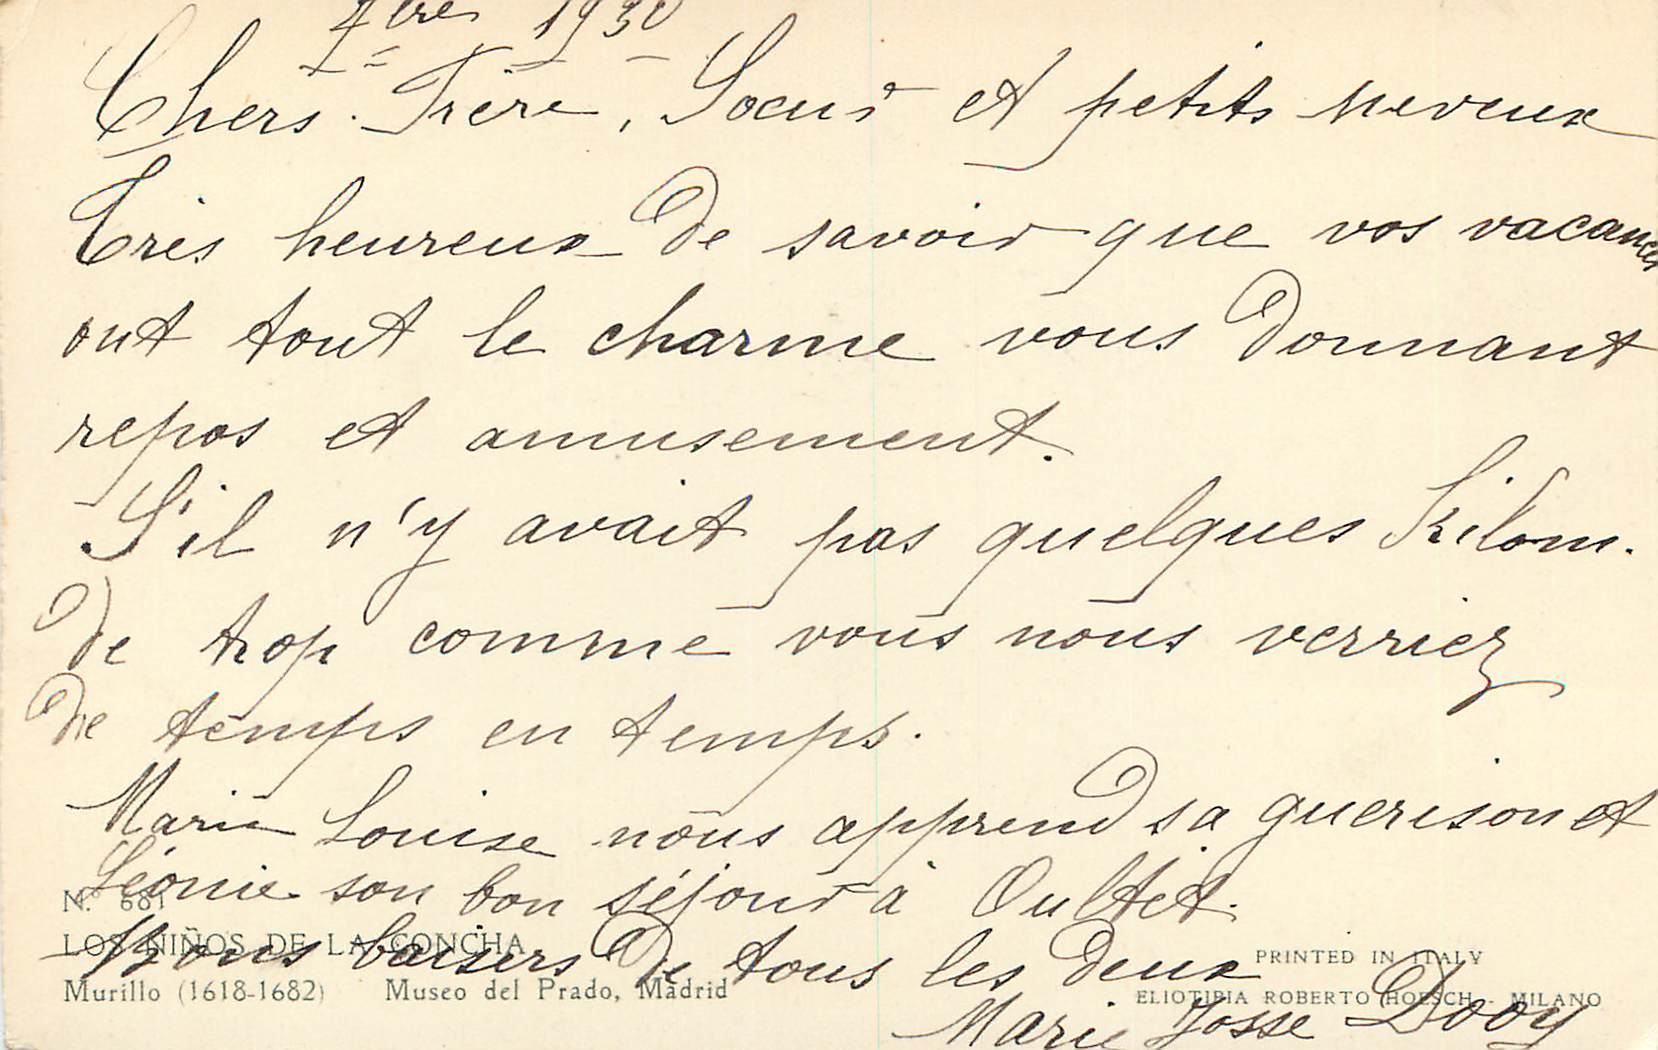 7bre 1930
Chers Frère, Soeur et petits neveux
Très heureux de savoir que vos vacances
ont tout le charme vous donnant
repos et amusement.
S'il n'y avait pas quelques Kilom.
de trop comme vous nous verriez
de temps en temps.
Marie Louise nous apprend sa guerison et
Léonie son bon séjour à Oultet.
Bons baisers de tous les deux
Marie Josse Dooy
N.º 681
LOS NIÑOS DE LA CONCHA
Murillo (1618-1682) Museo del Prado, Madrid
PRINTED IN ITALY
ELIOTIPIA ROBERTO HOESCH - MILANO